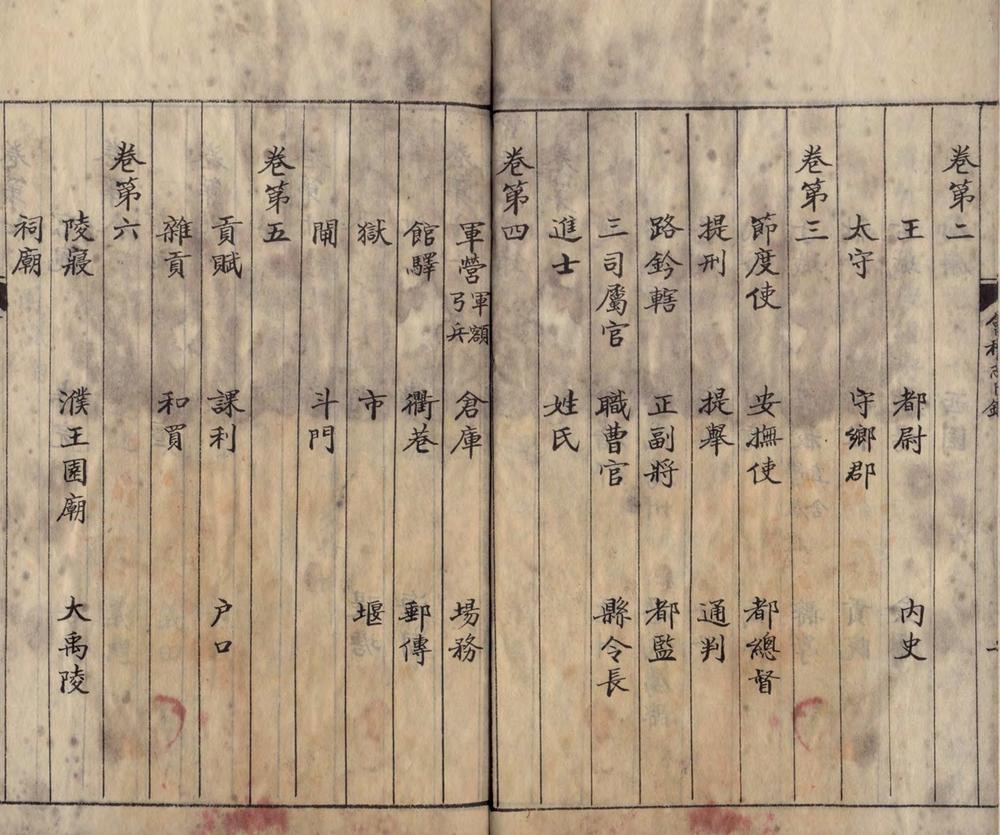 卷第二
王 都尉 內史
太守 守鄉郡
卷第三
節度使 安撫使 都總督
提刑 提舉 通判
路鈐轄 正副將 都監
三司屬官 職曹官 縣令長
進士 姓氏
卷第四
軍營軍額弓兵 倉庫 場務
館驛 衢巷 郵傳
獄 市 堰
閘 斗門
卷第五
貢賦 課利 户口
雜貢 和買
卷第六
陵寢 濮王園廟 大禹陵
祠廟